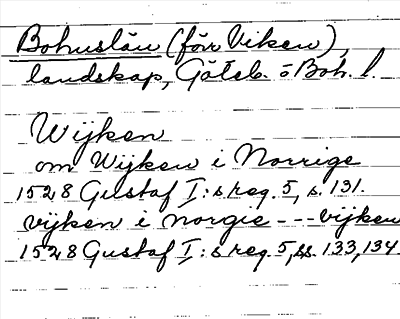 Bohuslän (förr Viken),
landskap, Göteb. o Boh. l.
Wijken
om Wijken i Norrige
1528 Gustaf I:s reg. 5, s. 131.
vijken i norgie --- vijken
1528 Gustaf I:s reg. 5, ss. 133, 134.